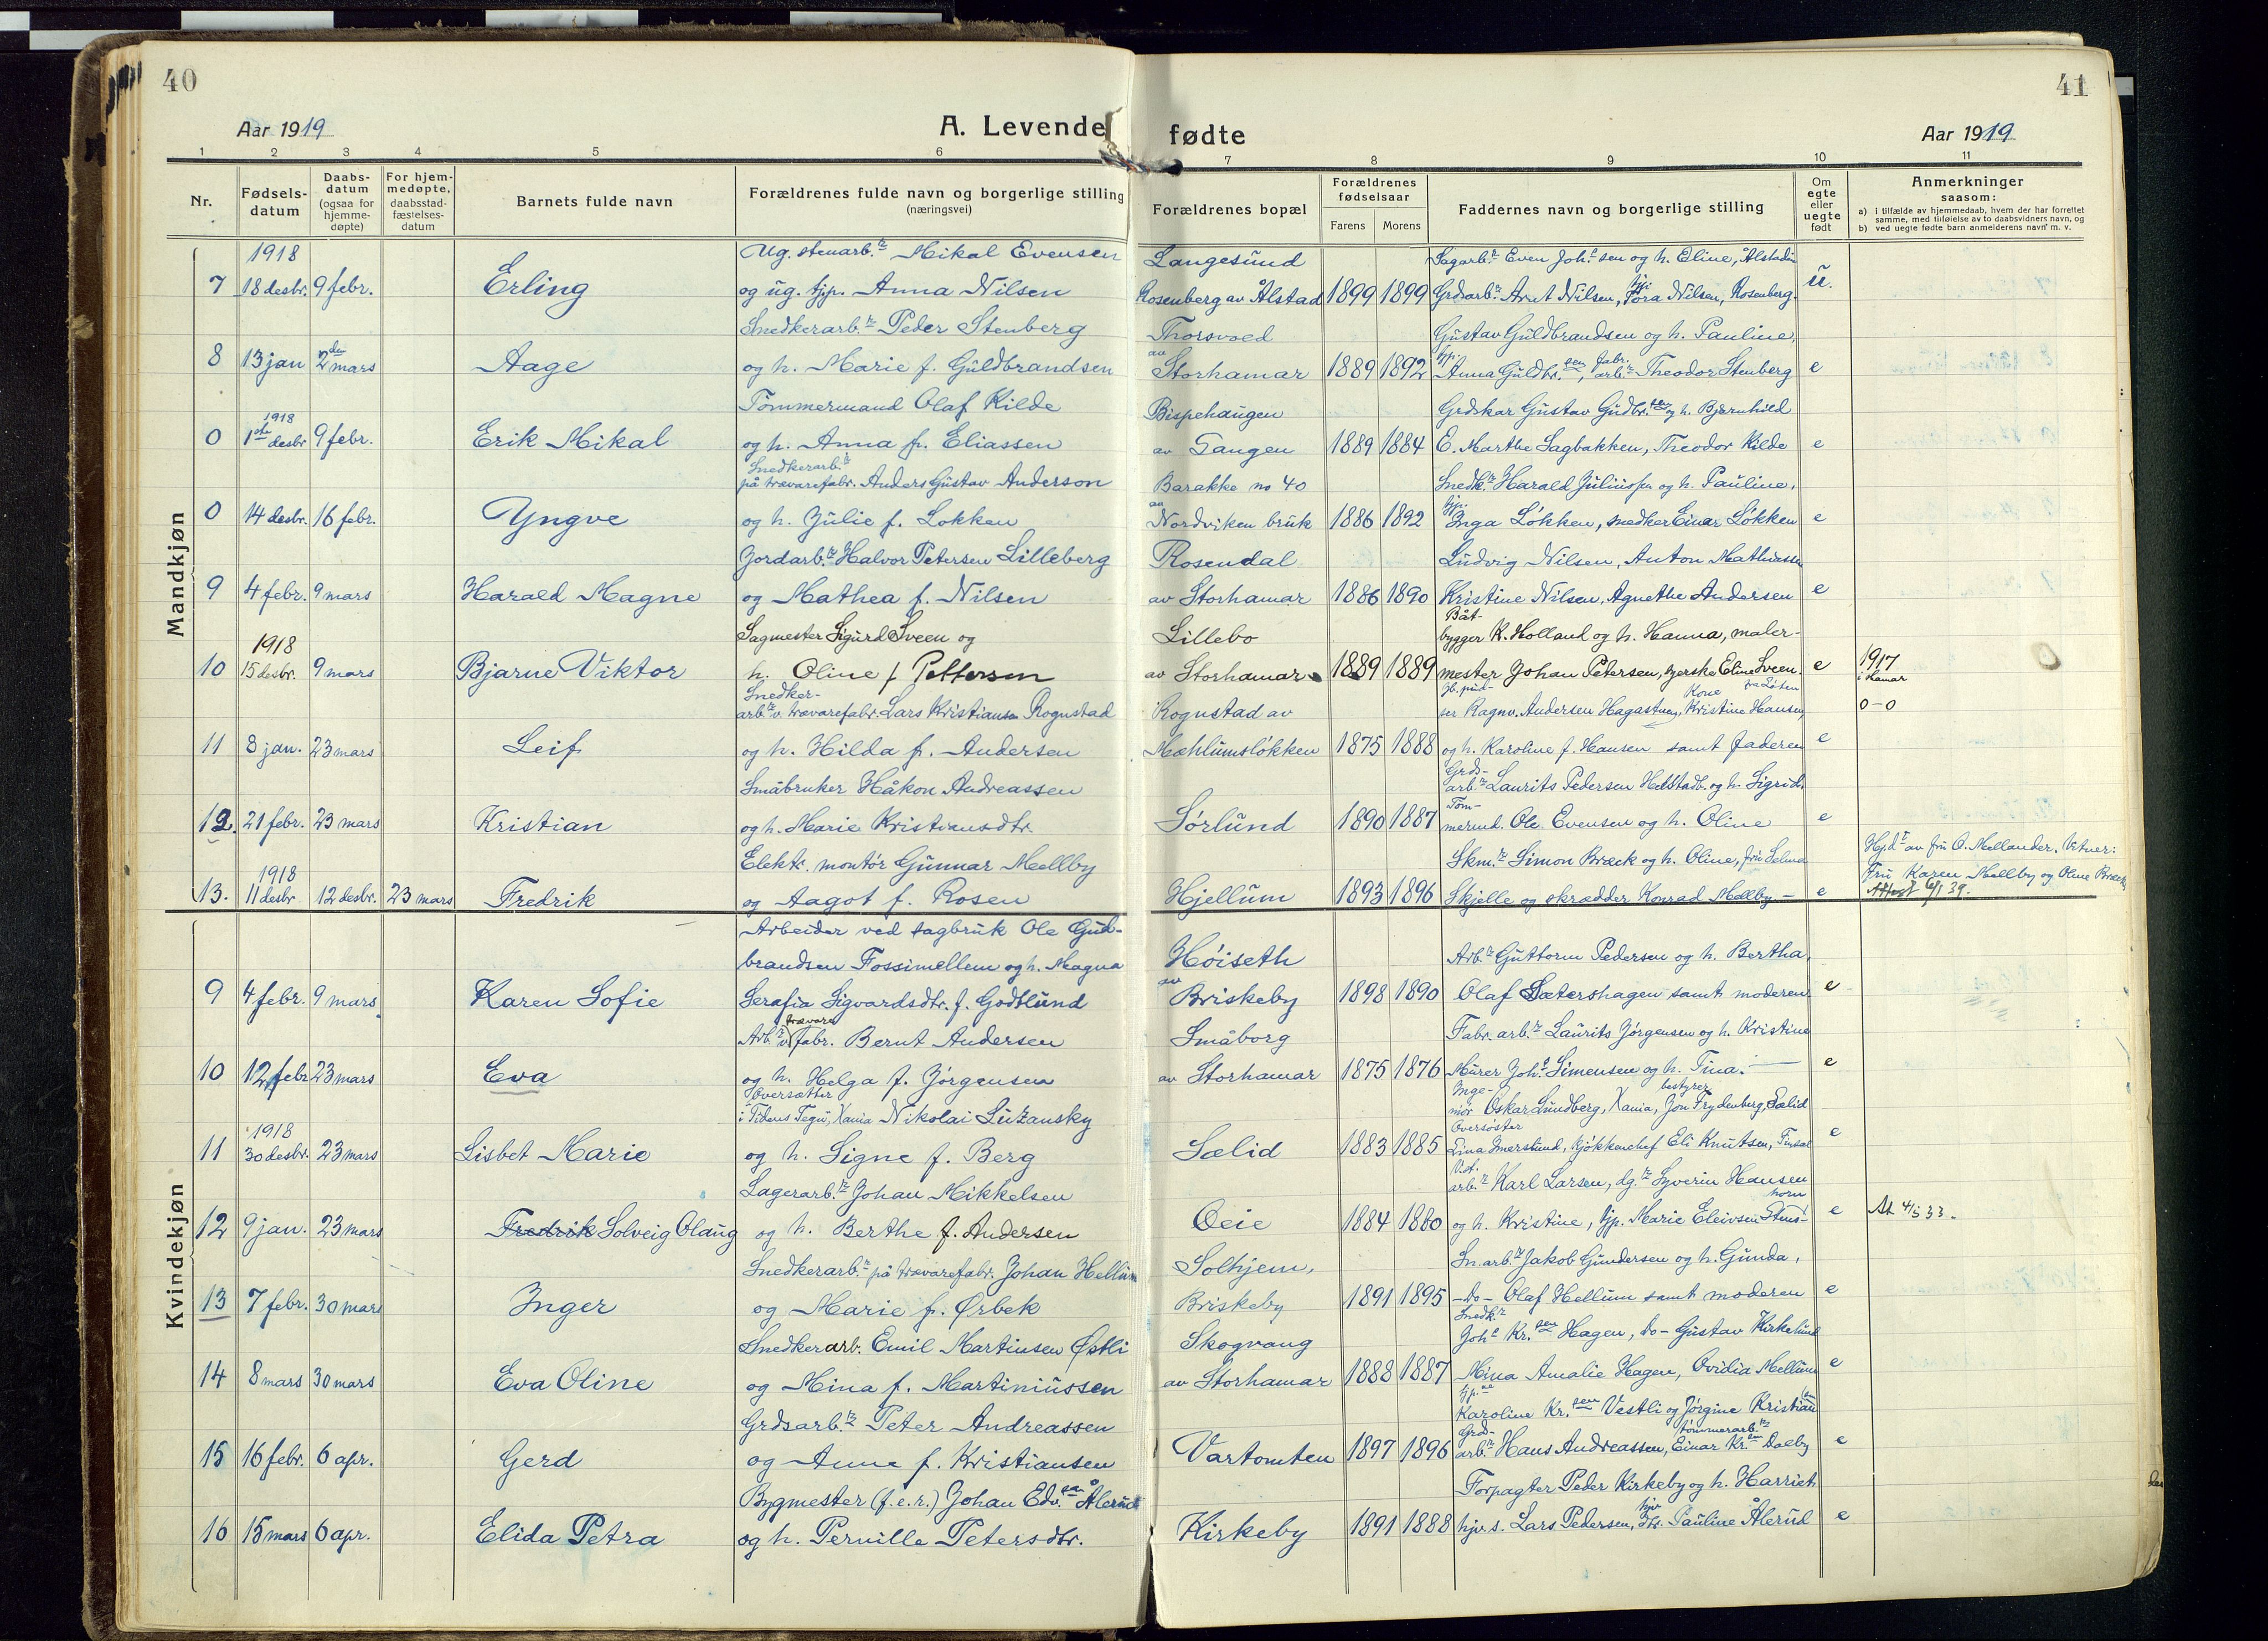 40
41
Aar 1919
A. Levende fødte
Aar 1919
1 2 3 4 5 6 7 8 9 10 11
Nr.
Fødsels-
datum
Daabs-
datum
(ogsaa for
hjemme-
døpte)
For hjem-
medøpte,
daabsstad-
fæstelses-
datum
Barnets fulde navn
Forældrenes fulde navn og borgerlige stilling
(næringsvei)
Forældrenes bopæl
Forældrenes
fødselsaar
Farens Morens
Faddernes navn og borgerlige stilling
Om
egte
eller
uegte
født
Anmerkninger
saasom:
a) I tilfælde av hjemmedaab, hvem der har forrettet
samme, med tilføielse av to daabsvidners navn, og
b) ved uegte fødte barn anmelderens navn m. v.
Mandkjøn
1918 Ug. stenarb.r Mikal Evensen Langesund Sagarb.r Even Joh.sen og h. Eline, Ålstadie
7 18 desbr. 9 febr. Erling og ug. tjp. Anna Nilsen Rosenberg av Ålstad 1899 1899 Grdarb.r Arnt Nilsen, tjp. Tora Nilsen, Rosenberg. u.
Snedkerarb.r Peder Stenberg Thorsvoed Gustav Guldbrandsen og h. Pauline,
8 13 jan 2den mars Aage og h. Marie f. Guldbrandsen av Storhamar 1889 1892 tjp. Anna Guldbr.sen, fabr. arb.r Theodor Stenberg e
1918 Tømmermand Olaf Kilde Bispehaugen Grdskar Gustav Gudbr.sen og h. Bjørnhild
0 1ste desbr 9 febr. Erik Mikal og h. Anna f. Eliassen av Tangen 1889 1884 E. Marthe Sagbakken, Theodor Kilde e
Snedkerarb.r
på trævarefabr. Anders Gustav Anderson Barakke no 40 Snedk.r Harald Juliussen og h. Pauline,
0 14 desbr. 16 febr. Yngve og h. Julie f. Løkken av Nordviken bruk 1886 1892 tjp. Inga Løkken, snedker Einar Løkken e
Jordarb.r Halvor Petersen Lilleberg Rosendal Ludvig Nilsen, Anton Mathiassen
9 4 febr. 9 mars Harald Magne og Mathea f. Nilsen av Storhamar 1886 1890 Kristine Nilsen, Agnethe Andersen e
1918 Sagmester Sigurd Sveen og Lillebo Båt-
bygger K. Holland og h. Hanna, maler-
10 15 desbr. 9 mars Bjarne Viktor h. Oline f Pettersen av Storhamar 1889 1889 mester Johan Petersen, syerske Eline Sveen. e 1917 i Hamar
Snedker-
arb.r v. trævarefabr. Lars Kristiansen Rognstad Rognstad av Ragnv. Andersen Hagastuen, Kone Kristine Hansen, fra Løten 0-0
11 8 jan. 23 mars Leif og h. Hilda f. Andersen Mæhlumsløkken 1875 1888 og h. Karoline f. Hansen samt faderen e
Småbruker Håkon Andreassen Grds-
arb.r Laurits Pedersen Helstadb. og h. Sigrid.
12. 21 febr. 23 mars Kristian og h. Marie Kristiansdtr. Sørlund 1890 1887 Tøm-
mermd. Ole Evensen og h. Oline e
1918 Elektr. montør Gunnar Mellby Skm.r Simon Bræck og h. Oline, fru Selma Hj.dt av fru O. Mellander. Vitner:
Fru Karen Mellby og Oline Bræck
13. 11 desbr 12 desbr. 23 mars Fredrik og Aagot f. Rosen Hjellum 1893 1896 Skjelle og skrædder Konrad Mellby - e Attest 6/1 39.
Kvindekjøn
Arbeider ved sagbruk Ole Gud-
brandsen Fossimellem og h. Magna Høiseth Arb.r Guttorm Pedersen og h. Bertha,
9 4 febr. 9 mars Karen Sofie Serafia Sigvardsdtr. f. Godtlund av Briskeby 1898 1890 Olaf Sætershagen samt moderen. e
Arb.r v. trævare fabr. Bernt Andersen Småborg Fabr. arb.r Laurits Jørgensen og h. Kristine
10 12 febr 23 mars Eva og h. Helga f. Jørgensen av Storhamar 1875 1876 Murer Joh.s Simensen og h. Tina. e
Oversætter
1918 i Tidens Tegn, Kania Nikolai Luzansky Inge-
niør Oskar Lundberg, Kania, bestyrer Jon Frydenberg, Sælid
11 30 desbr. 23 mars Lisbet Marie og h. Signe f. Berg Sælid 1883 1885 Oversøster
Lina Imerslund, kjøkkenchef Eli Knutsen, e
Lagerarb.r Johan Mikkelsen arb.r Karl Larsen, dg.r Syverin Hansen
12 9 jan. 23 mars Fredrik Solveig Olaug og h. Berthe f. Andersen Oeie 1884 1880 og h. Kristine, tjp. Marie Eleivsen Stens-
horn e At. 4/5 33.
Snedkerarb.r på trævarefabr. Johan Hellum Solhjem, Sn.arb.r Jakob Gundersen og h. Gunda,
13 7 febr. 30 mars Inger og Marie f. Ørbek Briskeby 1891 1895 -Do- Olaf Hellum samt moderen e
Snedkerarb. Emil Martinsen Østli Skogvang Snedk.r
Joh.s Kr.sen Hagen, Do- Gustav Kirkelund
14 8 mars 30 mars Eva Oline og Mina f. Martiniussen av Storhamar 1888 1887 Mina Amalie Hagen, Ovidia Mellum e
Grdsarb.r Peter Andreassen Karoline Kr.sen Vestli og Jørgine Kristiansen
15 16 febr. 6 apr. Gerd og Anne f. Kristiansen Vartomten 1897 1896 Grd-
arb.r Hans Andreassen, tømmerarb.r Einar Kr.sen Dælby e
Bygmester (f.e.r.) Johan Edv.sen Ålerud Forpagter Peder Kirkeby og h. Harriet
16 15 mars 6 apr. Elida Petra og h. Pernille Petersdtr. Kirkeby 1891 1888 hjv.s. Lars Pedersen, Pauline Ålerud e